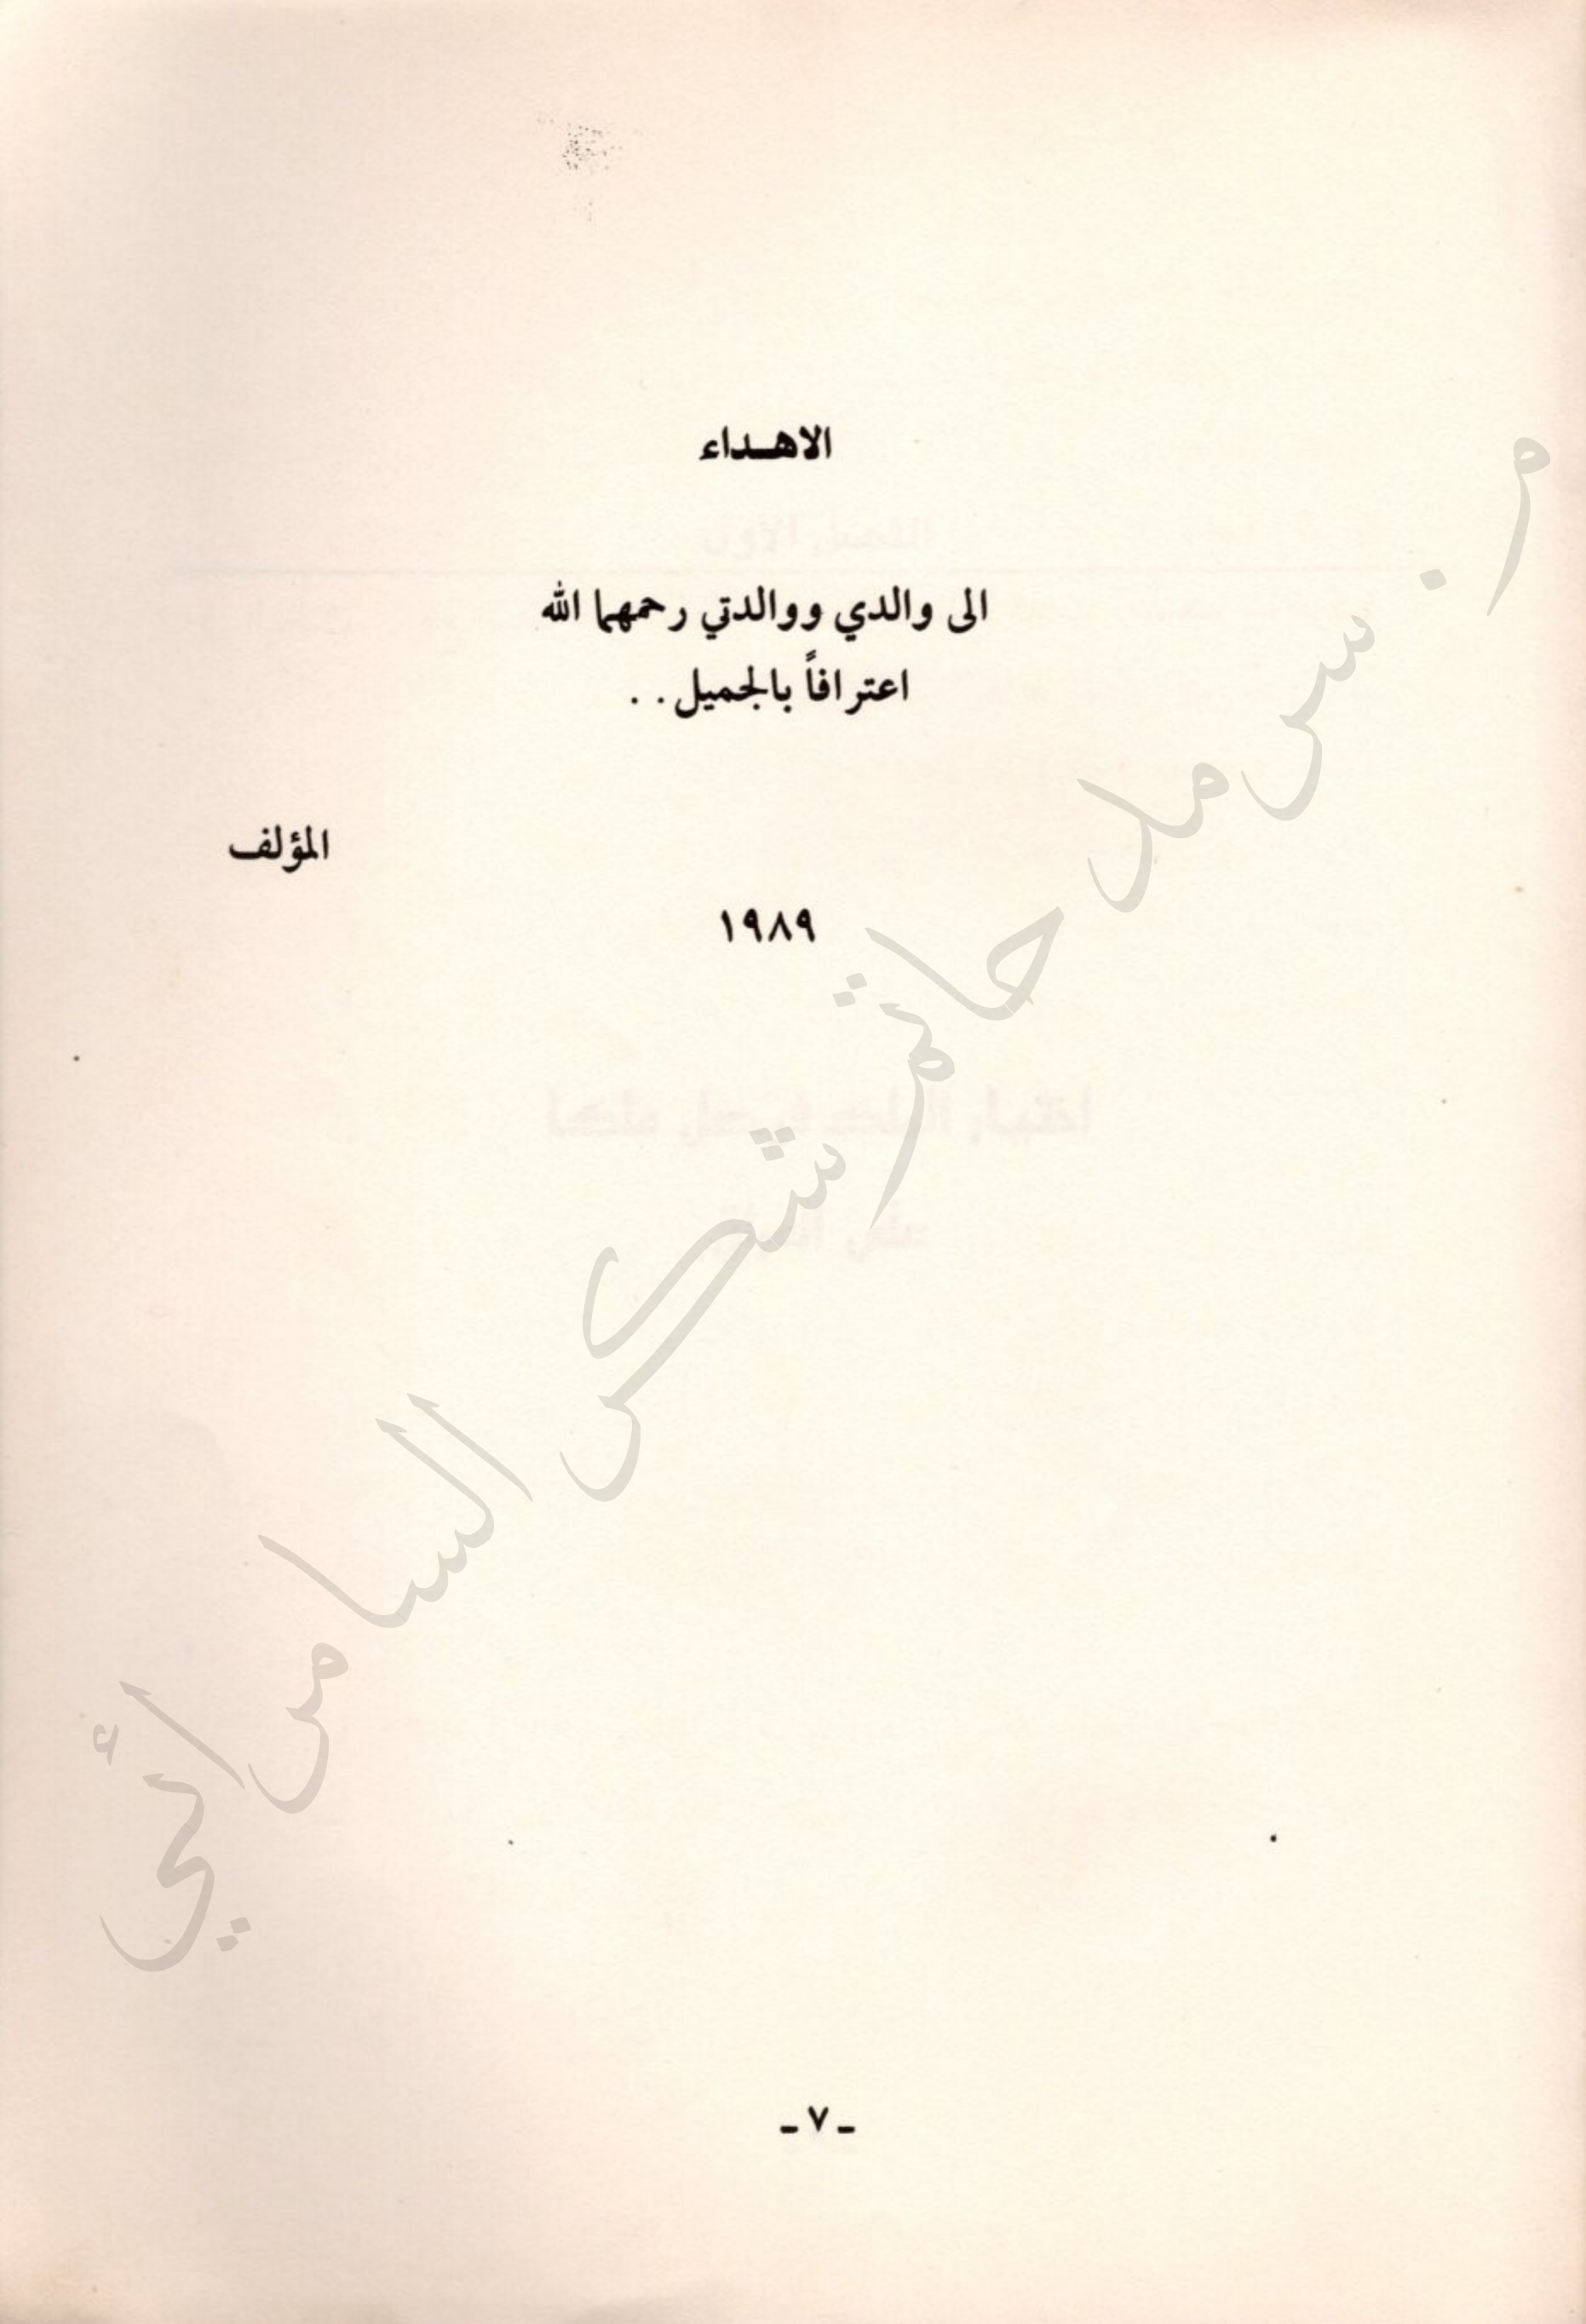 الاهـداء
الى والدي ووالدتي رحمهما الله
اعترافاً بالجميل . .
المؤلف
١٩٨٩
م. سرمد حاتم شكر السامرائي
ـ ٧ ـ